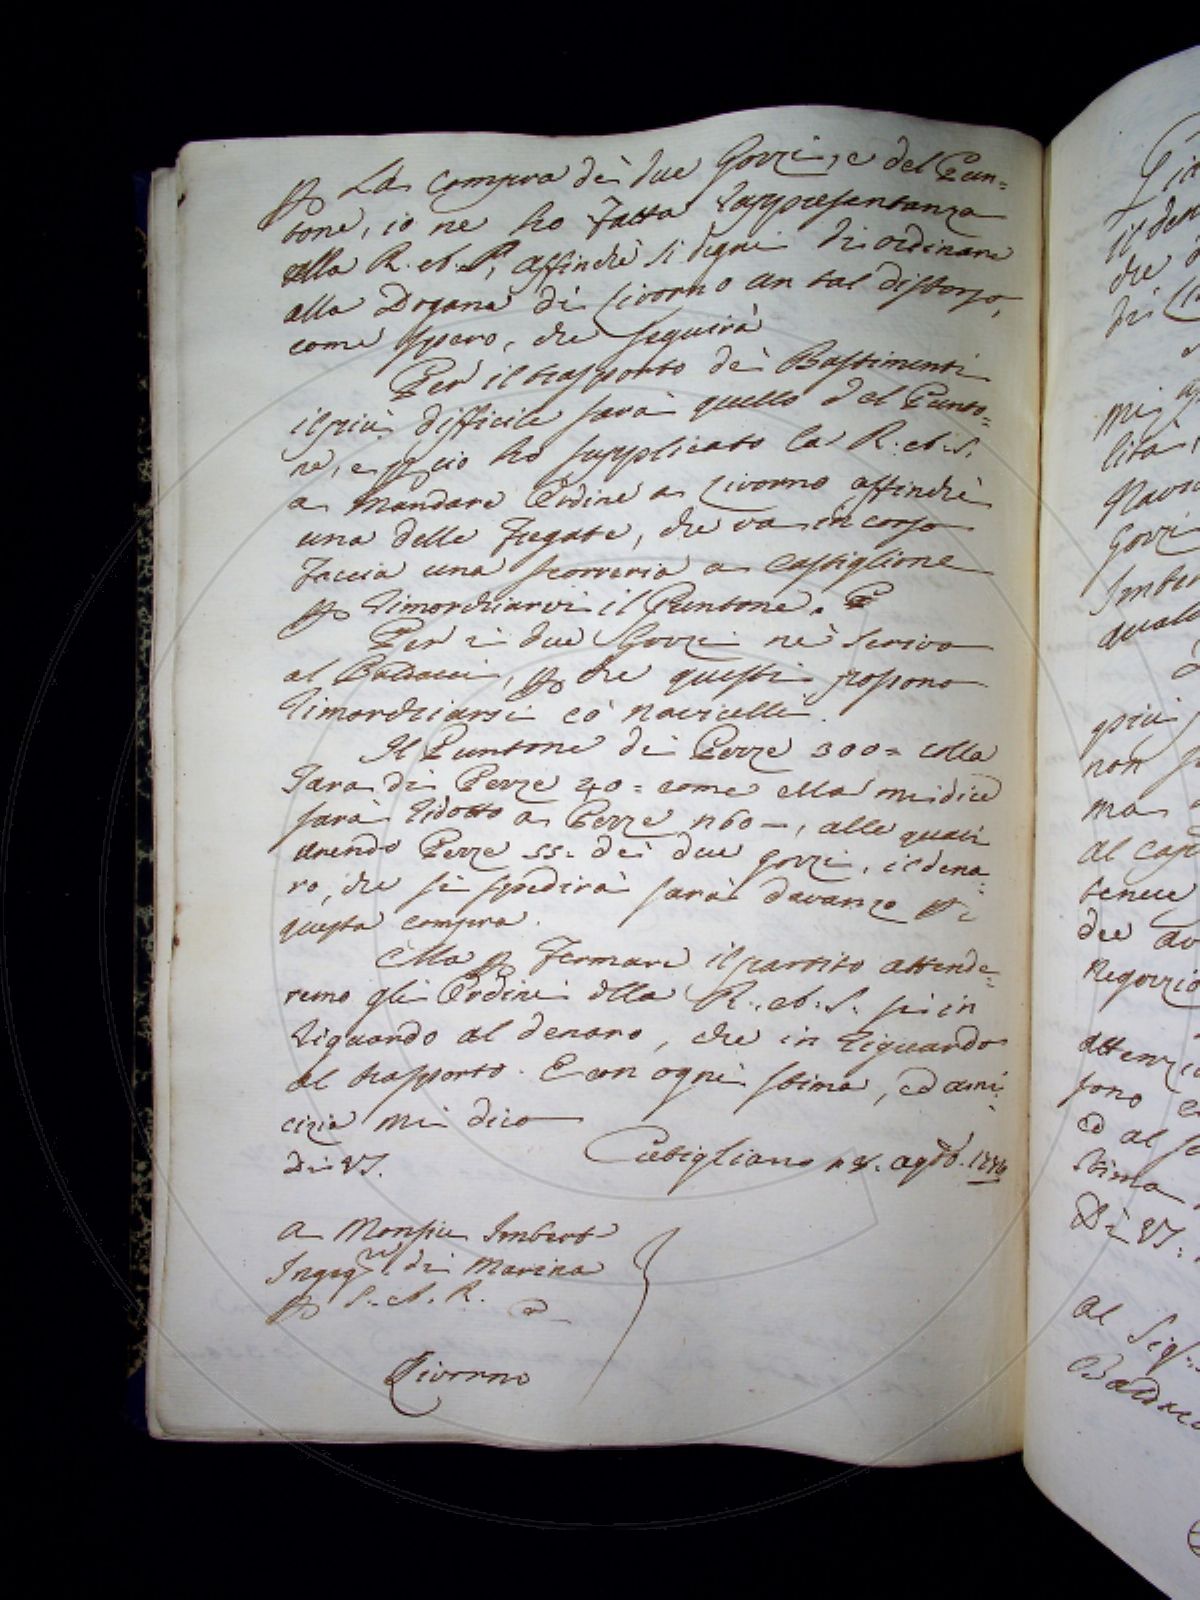 p La compra dei due Gozzi, e del Pun=
tone, io ne ho fatta rappresentanza
alla R. A. S., affinchè si degni di ordinare
alla Dogana di Livorno un tal disborso,
come spero, che seguirà
Per il trasporto dei Bastimenti
il più difficile sarà quello del Punto=
ne, e p ciò ho supplicato la R. A. S.
a mandare Ordine a Livorno affinchè
una delle Fregate, che va in corso
faccia una scorreria a Castiglione
p rimorchiarvi il Puntone.
Per i due Gozzi ne scrivo
al Baldacci, p che questi possono
rimorchiarsi co' navicelli.
Il Puntone di Pezze 300= colla
Tara di Pezze 40= come Ella mi dice
sarà ridotto a Pezze n 260—, alle quali
unendo Pezze 55. dei due gozzi, il dena=
ro, che si spedirà sarà davanzo p
questa compra.
Ma p fermare il partito attende=
remo gli Ordini della R. A. S. sì in
riguardo al denaro, che in riguardo
al trasporto. E con ogni stima, ed ami=
cizia mi dico
Di VS.
Cutigliano agto. 1776
A Monsieu Imbert
Ingegre. di Marina
p S. A. R.
Livorno
Gozzi
Imbert
più
non
ma
al
tenere
due
Negozio
sono
ed al
stima
Di VS.
Al Sigr.